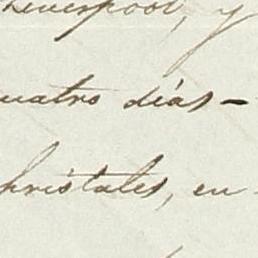 Liverpool, y
cuatro días -
christales, en